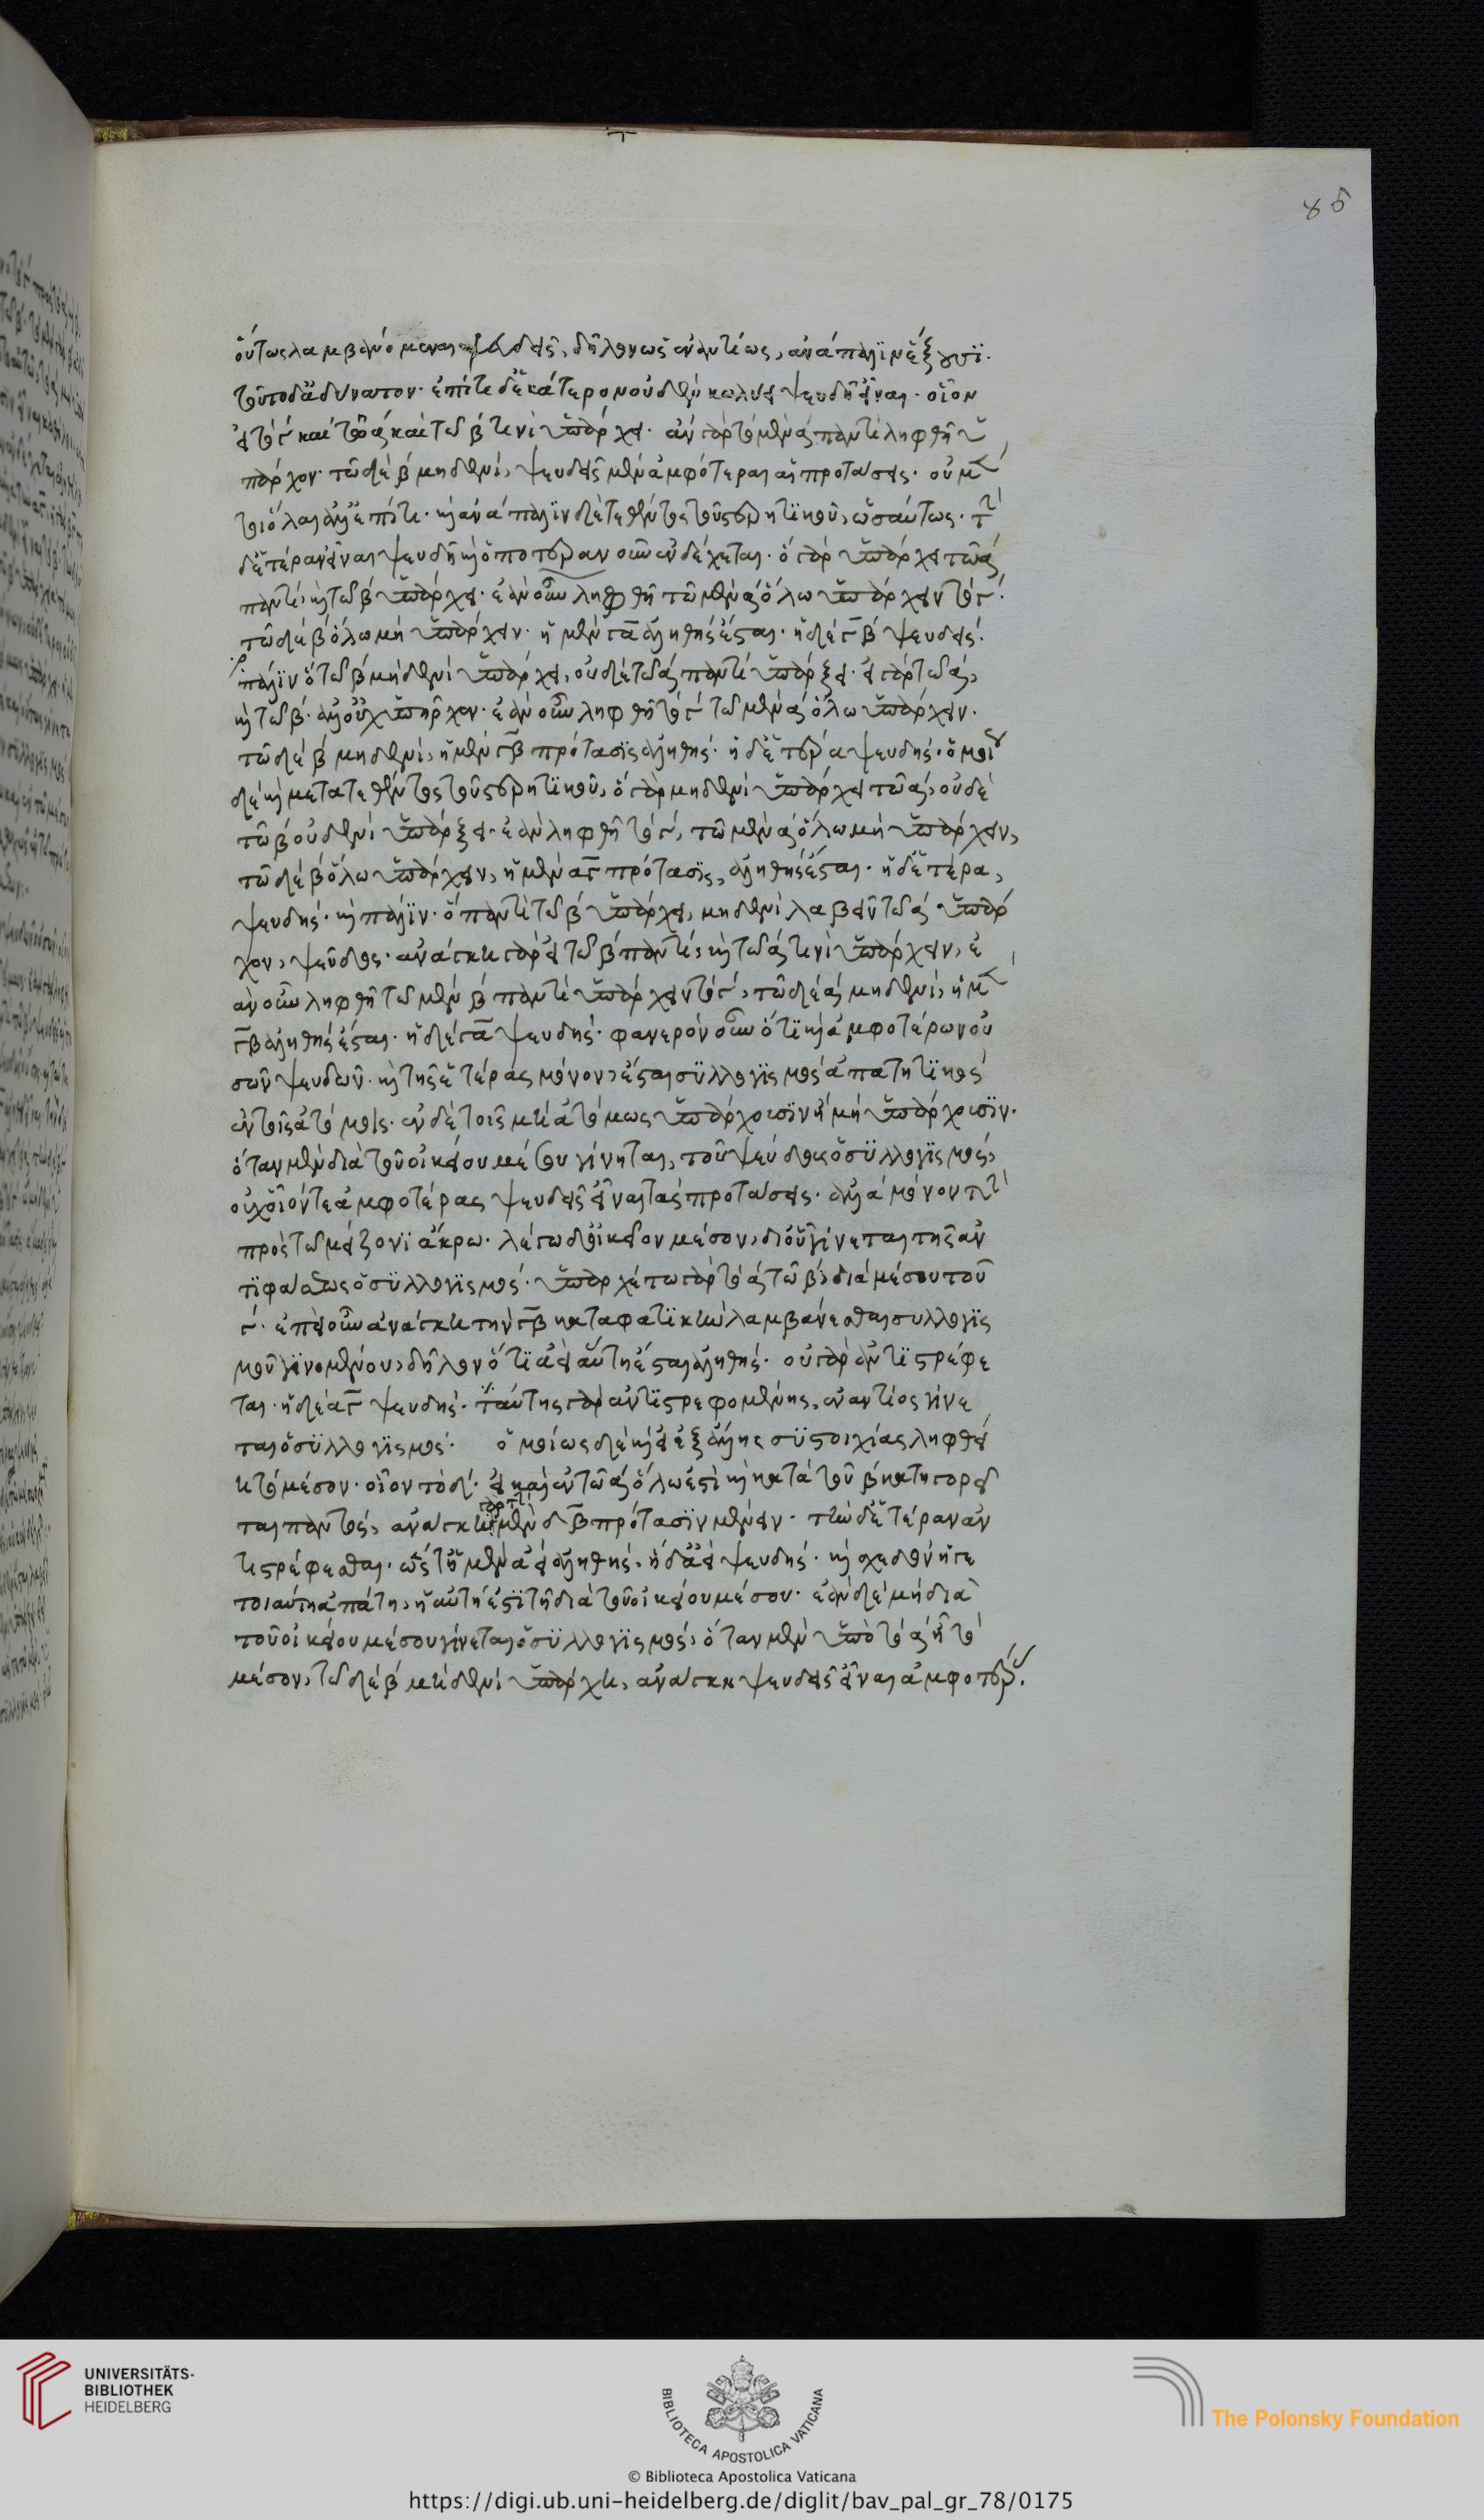 85
οὕτως λαμβανόμεναι ψευδεῖς, δῆλον ὡς ἐναντίως, ἀνάπαλιν ἕξουσι.
τοῦτο δ' ἀδύνατον. ἐπί τι δ' ἑκάτερον οὐδὲν κωλύει ψευδῆ εἶναι. οἷον
εἰ τὸ γ καὶ τῶ α καὶ τῶ β τινὶ ὑπάρχει. ἂν γὰρ τῶ μὲν α παντὶ ληφθῆ ὑ
πάρχον. τῶ δὲ β μηδενί, ψευδεῖς μὲν ἀμφότεραι αἱ προτάσεις. οὐ μέν
τοι ὅλαι ἀλλ' ἐπί τι. καὶ ἀνάπαλιν δὲ τεθέντος τοῦ στερητικοῦ, ὡσαύτως. τὴν
δ' ἑτέραν εἶναι ψευδῆ καὶ ὁποτεραν οῦν ἐνδέχεται. ὃ γὰρ ὑπάρχει τῶ α
παντί, καὶ τῶ β ὑπάρχει. ἐὰν οὖν ληφθῆ τῶ μὲν α ὅλω ὑπάρχειν τὸ γ.
τῶ δὲ β ὅλω μὴ ὑπάρχειν. ἡ μὲν γα ἀληθὴς ἔσται. ἡ δὲ γβ ψευδής.
πάλιν ὃ τῶ β μηδενὶ ὑπάρχει, οὐδὲ τῶ α παντὶ ὑπάρξει. εἰ γὰρ τῶ α,
καὶ τῶ β. ἀλλ' οὐχ ὑπῆρχον. ἐὰν οὖν ληφθῆ τὸ γ τῶ μὲν α ὅλω ὑπάρχειν.
τῶ δὲ β μηδενί, ἡ μὲν γβ πρότασις ἀληθής. ἡ δ' ἑτέρα ψευδής. ὁμοίως
δὲ καὶ μετατεθέντος τοῦ στερητικοῦ, ὃ γὰρ μηδενὶ ὑπάρχει τῶ α, οὐδὲ
τῶ β οὐδενὶ ὑπάρξει. ἐὰν ληφθῆ τὸ γ, τῶ μὲν α ὅλω μὴ ὑπάρχειν,
τῶ δὲ β ὅλω ὑπάρχειν, ἡ μὲν αγ πρότασις, ἀληθὴς ἔσται. ἡ δ' ἑτέρα,
ψευδής. καὶ πάλιν. ὃ παντὶ τῶ β ὑπάρχει, μηδενὶ λαβεῖν τῶ α ὑπάρ
χον, ψεῦδος. ἀνάγκη γὰρ εἰ τῶ β παντί, καὶ τῶ α τινὶ ὑπάρχειν, ἐ
ὰν οὖν ληφθῆ τῶ μὲν β παντὶ ὑπάρχειν τὸ γ, τῶ δὲ α μηδενί, ἡ μὲν
γβ ἀληθὴς ἔσται. ἡ δὲ γα ψευδής. φανερὸν οὖν ὅτι καὶ ἀμφοτέρων οὐ
σῶν ψευδῶν. καὶ τῆς ἑτέρας μόνον, ἔσται συλλογισμὸς ἀπατητικὸς
ἐν τοῖς ἀτόμοις. ἐν δὲ τοῖς μὴ ἀτόμως ὑπάρχουσιν ἢ μὴ ὑπάρχουσιν.
ὅταν μὲν διὰ τοῦ οἰκείου μέσου γίνηται, τοῦ ψεύδους ὁ συλλογισμός,
οὐχ οἷόν τε ἀμφοτέρας ψευδεῖς εἶναι τὰς προτάσεις. ἀλλὰ μόνον τὴν
πρὸς τῶ μείζονι ἄκρω. λέγω δ' οἰκεῖον μέσον, δι' οὗ γίνεται τῆς ἀν
τιφάσεως ὁ συλλογισμός. ὑπαρχέτω γὰρ τὸ α τῶ β, διὰ μέσου τοῦ
γ. ἐπεὶ οὖν ἀνάγκη τὴν γβ καταφατικὴν λαμβάνεσθαι συλλογισ
μοῦ γινομένου, δῆλον ὅτι ἀεὶ αὕτη ἔσται ἀληθής. οὐ γὰρ ἀντιστρέφε
ται. ἡ δὲ αγ ψευδής. ταύτης γὰρ ἀντιστρεφομένης, ἐναντίος γίνε
ται ὁ συλλογισμός. ὁμοίως δὲ καὶ εἰ ἐξ ἄλλης συστοιχίας ληφθεί
η τὸ μέσον. οἷον τὸ δ. εἰ καὶ ἐν τῶ α ὅλω ἐστὶ καὶ κατὰ τοῦ β κατηγορεῖ
ται παντός, ἀνάγκη γὰρ τὴν μὲν δβ πρότασιν μένειν. τὴν δ' ἑτέραν ἀν
τιστρέφεσθαι. ὥστε ἡ μὲν ἀεὶ ἀληθής, ἡ δ' ἀεὶ ψευδής. καὶ σχεδὸν ἥ γε
τοιαύτη ἀπάτη, ἡ αὐτή ἐστι τῆ διὰ τοῦ οἰκείου μέσου. ἐὰν δὲ μὴ διὰ
τοῦ οἰκείου μέσου γίνεται ὁ συλλογισμός, ὅταν μὲν ὑπὸ τὸ α ἦ τὸ
μέσον, τῶ δὲ β μηδενὶ ὑπάρχη, ἀνάγκη ψευδεῖς εἶναι ἀμφοτέρας.
UNIVERSITÄTS-
BIBLIOTHEK
HEIDELBERG
BIBLIOTECA APOSTOLICA VATICANA
The Polonsky Foundation
© Biblioteca Apostolica Vaticana
https://digi.ub.uni-heidelberg.de/diglit/bav_pal_gr_78/0175